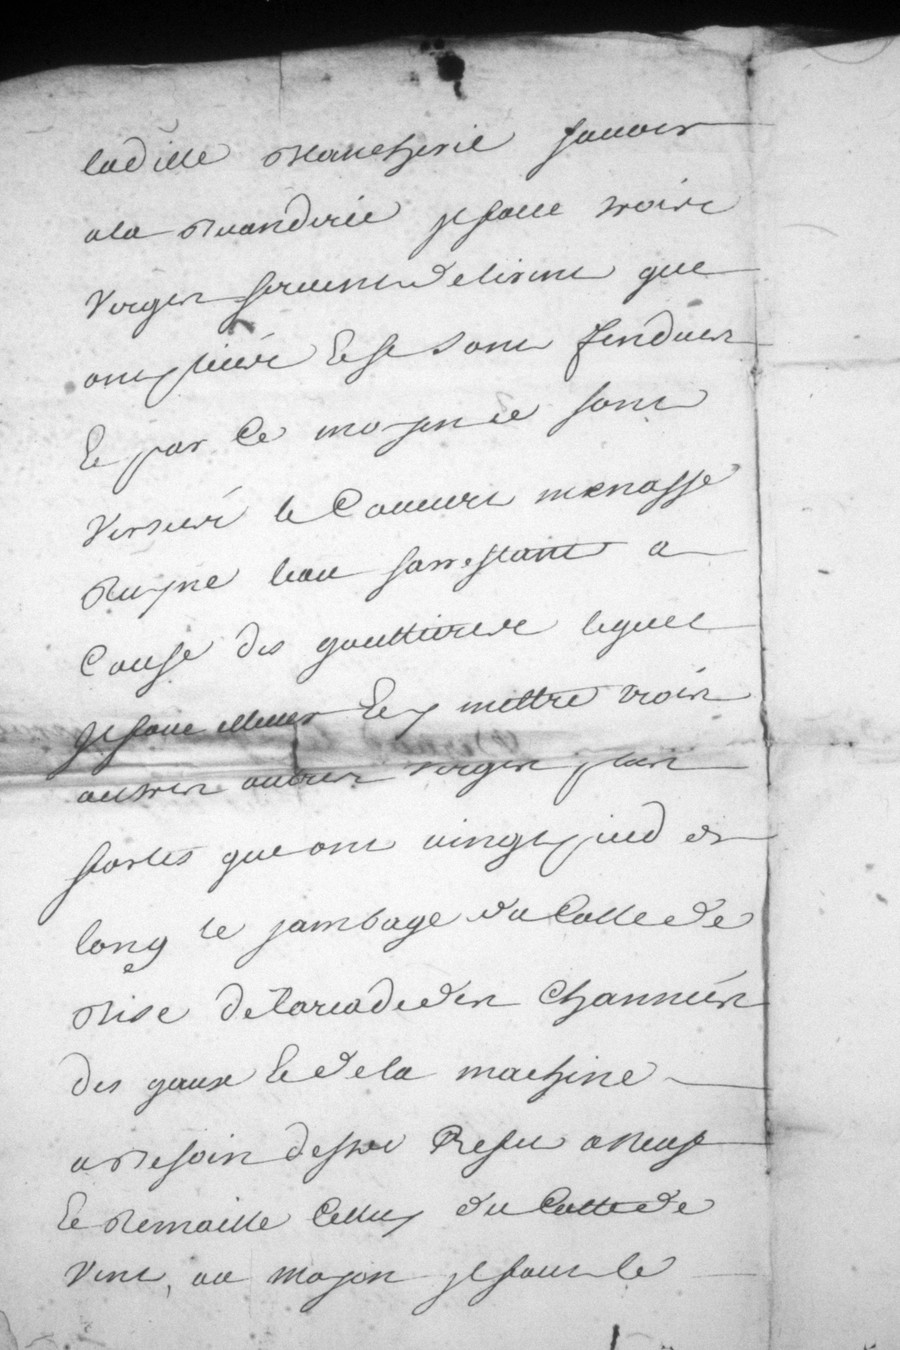 ladille blancherie sauoir
a la buanderie jl faut trois
verges seruent de liront que
ont pieds Et se sont fendues
Et par Ce moyen se sont
Versées le Couuert menasse
Ruyne leau sarrestant a
Cause des gouttieres lequel
jl faut Et y mettre trois
autres verges plus
fortes que ont vingt pied de
long le jambage du Costé de
Bise de larcade des
des gaux Et de la machine
a besoin destre Refait a neuf
Et Remaille Celluy du Costé de
Vent, au moyen jl faut le